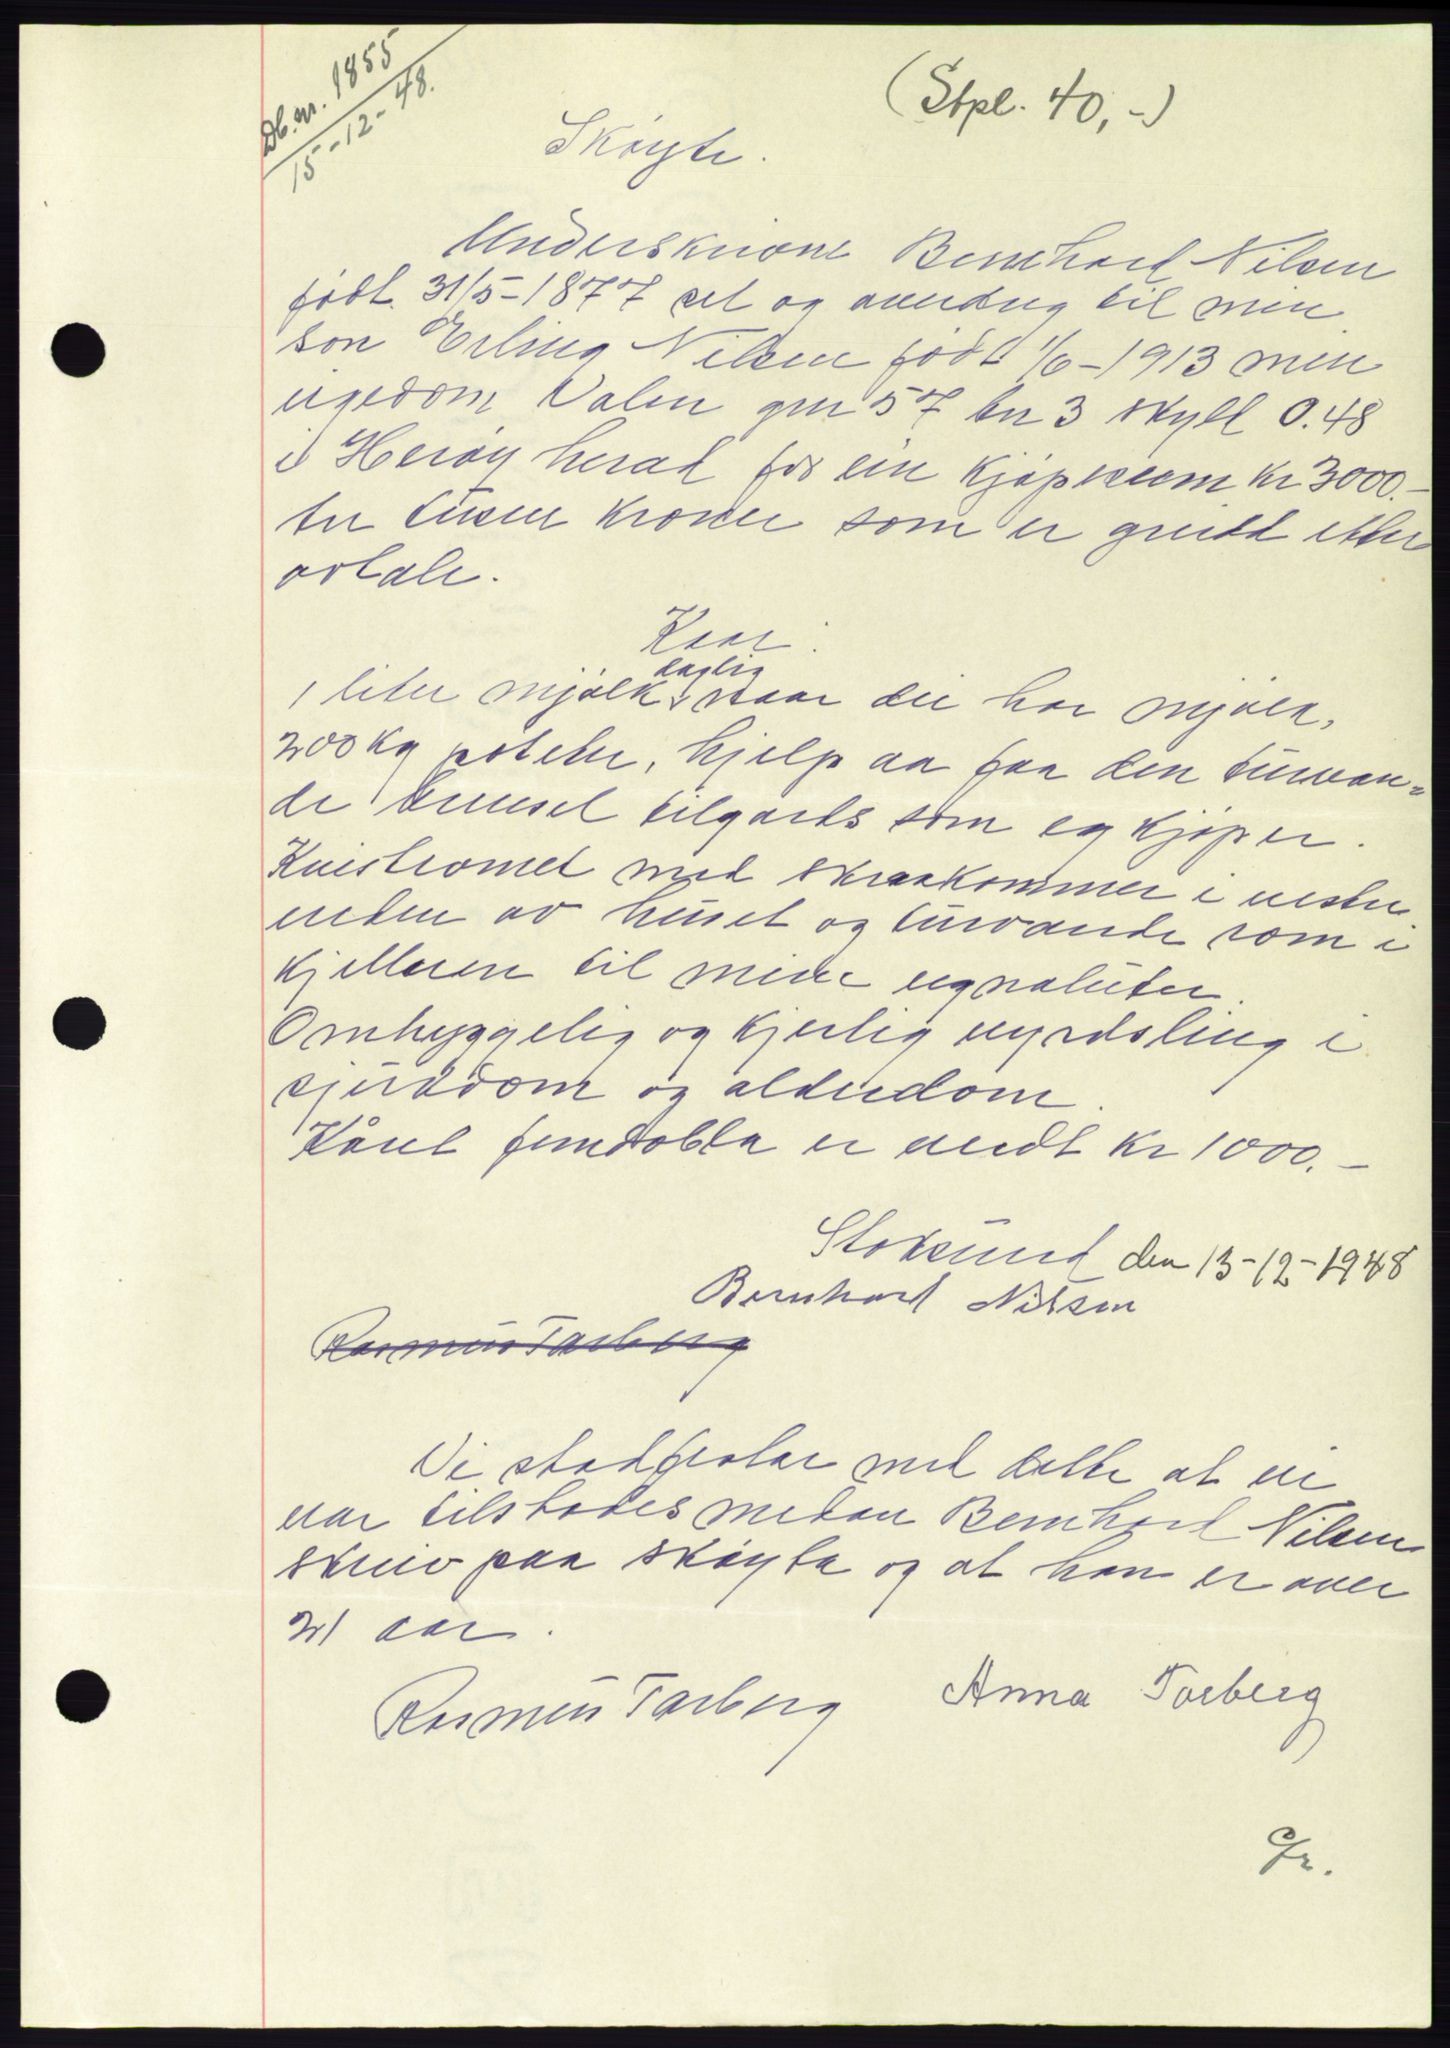 Db.nr. 1855
15-12-48.
(Stpl. 40,-)
Skøyte.
Underskrivne Bernhard Nilsen
født. 31/5-1877 sel og averdreg til min
son Erling Nilsen født 1/6-1913 min
eigedom Valen gnr 57 bnr 3 skyld 0.48
i Herøy herad for ein kjøpesum kr 3000.-
tre tusen kroner som er greidd etter
avtale.
Kaar:
daglig
1 liter mjølk naar dei har mjølk,
200 kg poteter, hjelp aa faa den turvan=
de brensel tilgards som eg kjøper.
Kvistromet med skraakammer i vestre
enden av huset og turvande rom i
kjelleren til mine eignaluter.
Omhyggelig og kjerlig røyrdsling i
sjukdom og alderdom.
Kåret femdobla er verdt kr 1000.-
Stoksund den 13-12-1948
Bernhard Nilsen
Rasmus Tarberg
Vi stadfestar med dette at vi
var tilstades medan Bernhard Nilsen
skreiv paa skøyta og at han er over
21 aar.
Rasmus Tarberg Anna Tarberg